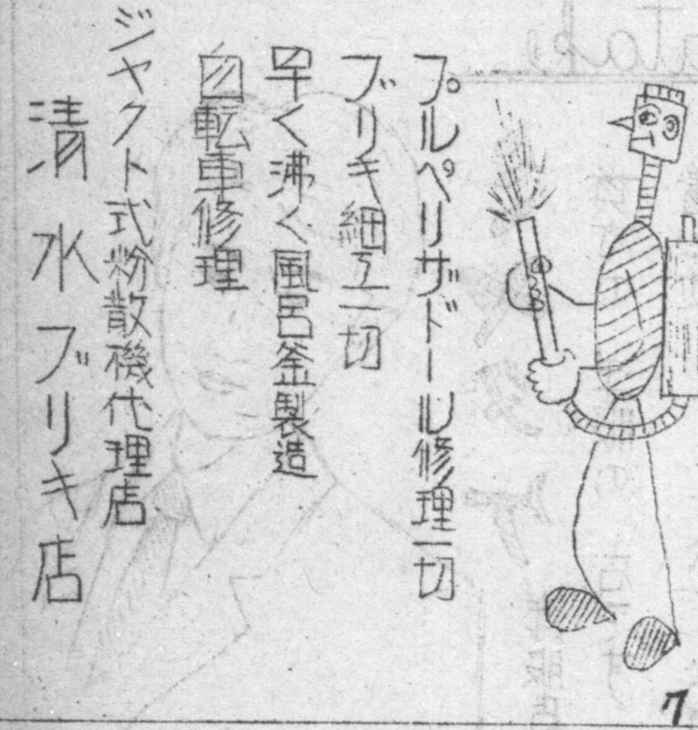 プルペリザドール修理一切
ブリキ細工一切
早く沸く風呂釜製造
自転車修理
ジャクト式粉散機代理店
清水ブリキ店
7